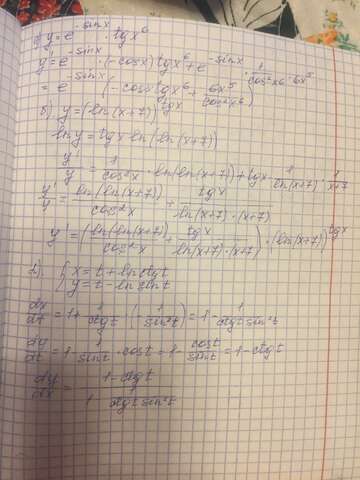 y = e^{-sinx} · tgx^6
y' = e^{-sinx} · (-cosx) tgx^6 + e^{-sinx} · 1/cos^2x^6 · 6x^5
= e^{-sinx} (-cosx tgx^6 + 6x^5/cos^2x^6)
б). y = (ln(x+7))^{tgx}
lny = tgx ln(ln(x+7))
y'/y = 1/cos^2x · ln(ln(x+7)) + tgx · 1/ln(x+7) · 1/x+7
y'/y = ln(ln(x+7))/cos^2x + tgx/ln(x+7)·(x+7)
y' = (ln(ln(x+7))/cos^2x + tgx/ln(x+7)·(x+7)) · (ln(x+7))^{tgx}
{ x = t + ln ctgt
y = t - ln sint
dx/dt = 1 + 1/ctgt · (-1/sin^2t) = 1 - 1/ctgt sin^2t
dy/dt = 1 - 1/sint · cost = 1 - cost/sint = 1 - ctgt
dy/dx = 1 - ctgt / 1 - 1/ctgt sin^2t